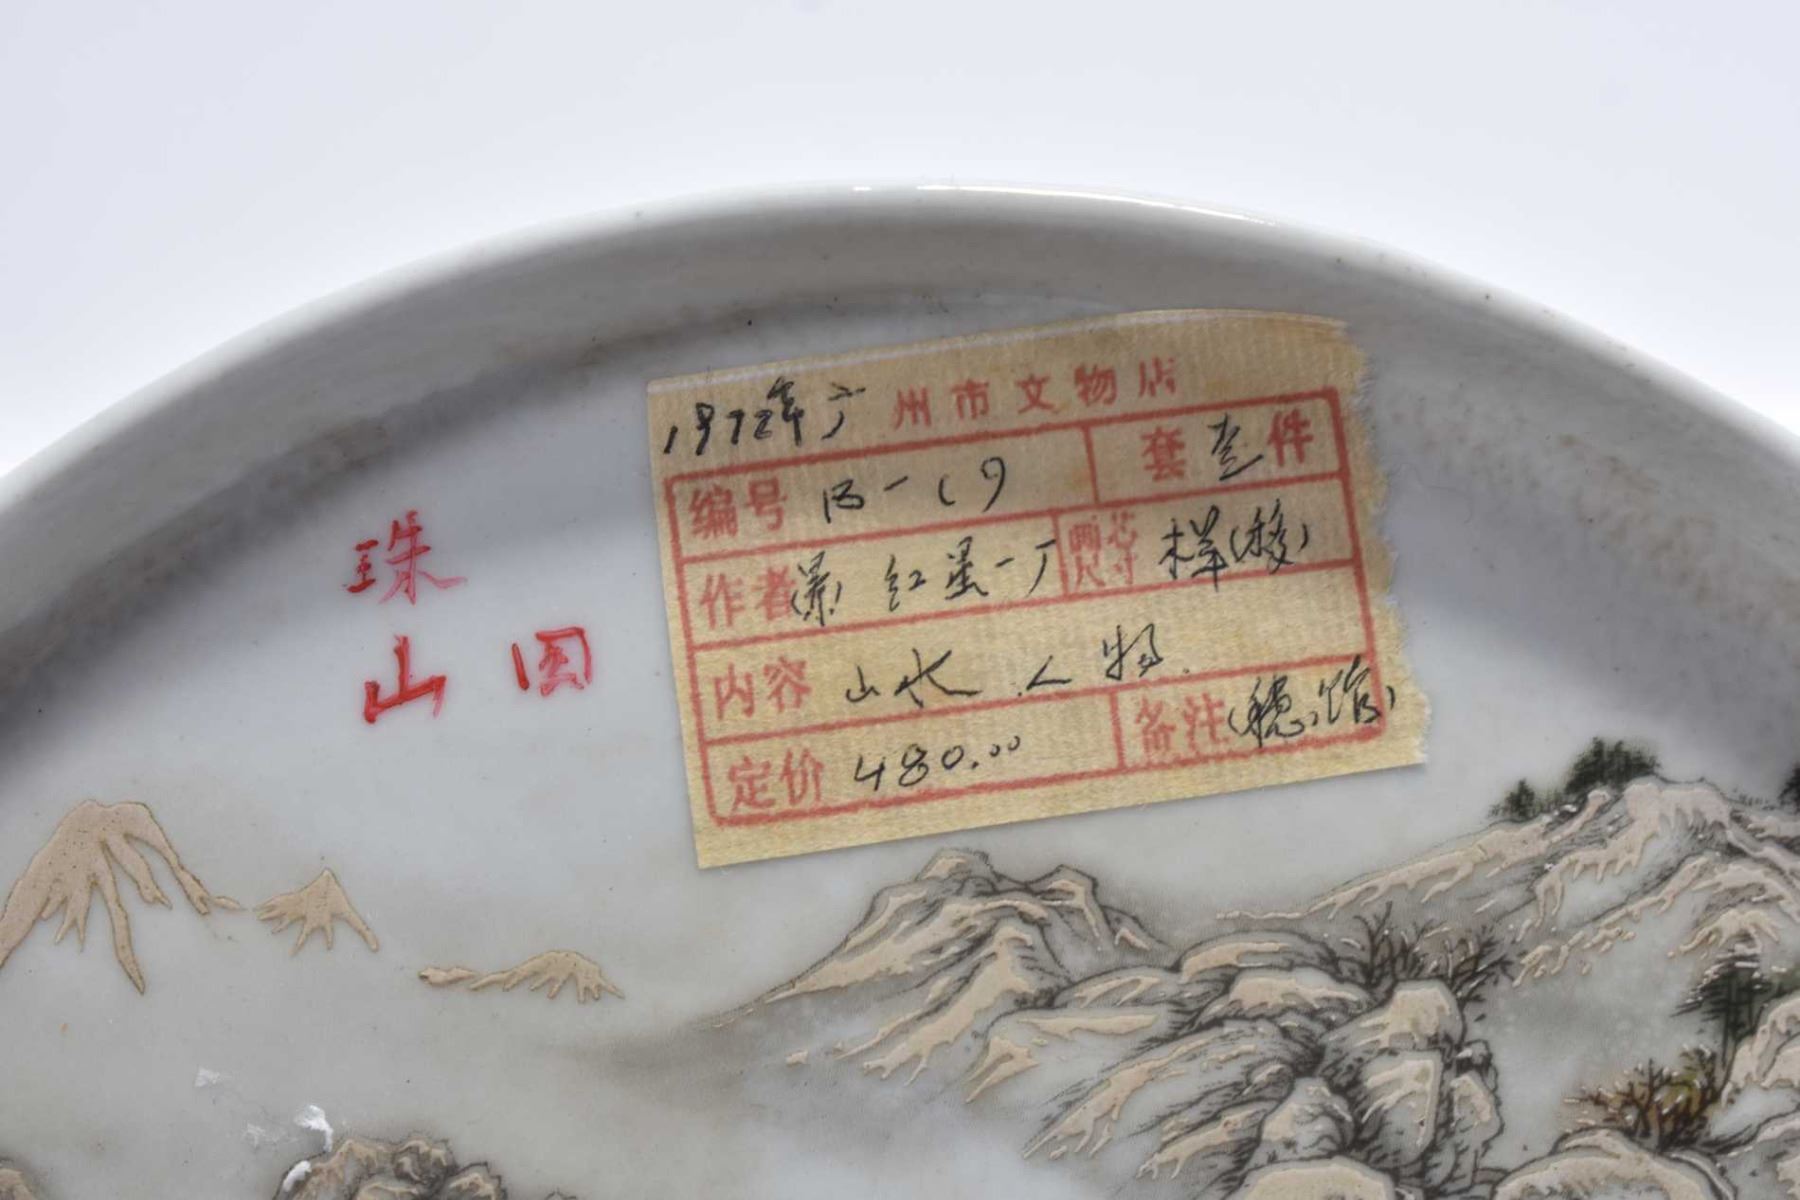 珠
山
1972年广州市文物店
编号 B-19 套 壹 件
作者(景)红星一厂 画芯尺寸 样(移)
内容 山水.人物.
定价 480.00 备注(穗.馆)